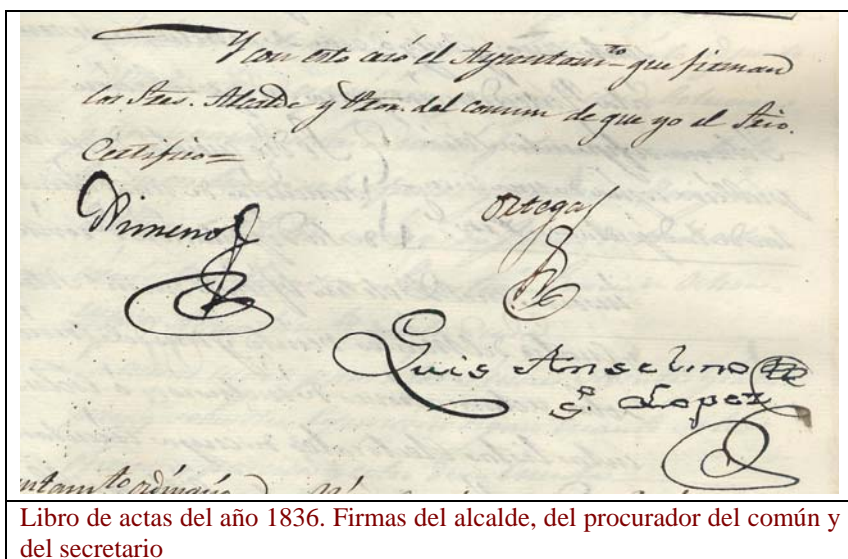 Y con esto cesó el Ayuntam.to que firman
los Sres. Alcalde y Pror. del comun de que yo el Srio.
Certifico=
Ximeno
Ortega
Luis Anselmo
S. Lopez
ntam.to ordinario
Libro de actas del año 1836. Firmas del alcalde, del procurador del común y
del secretario